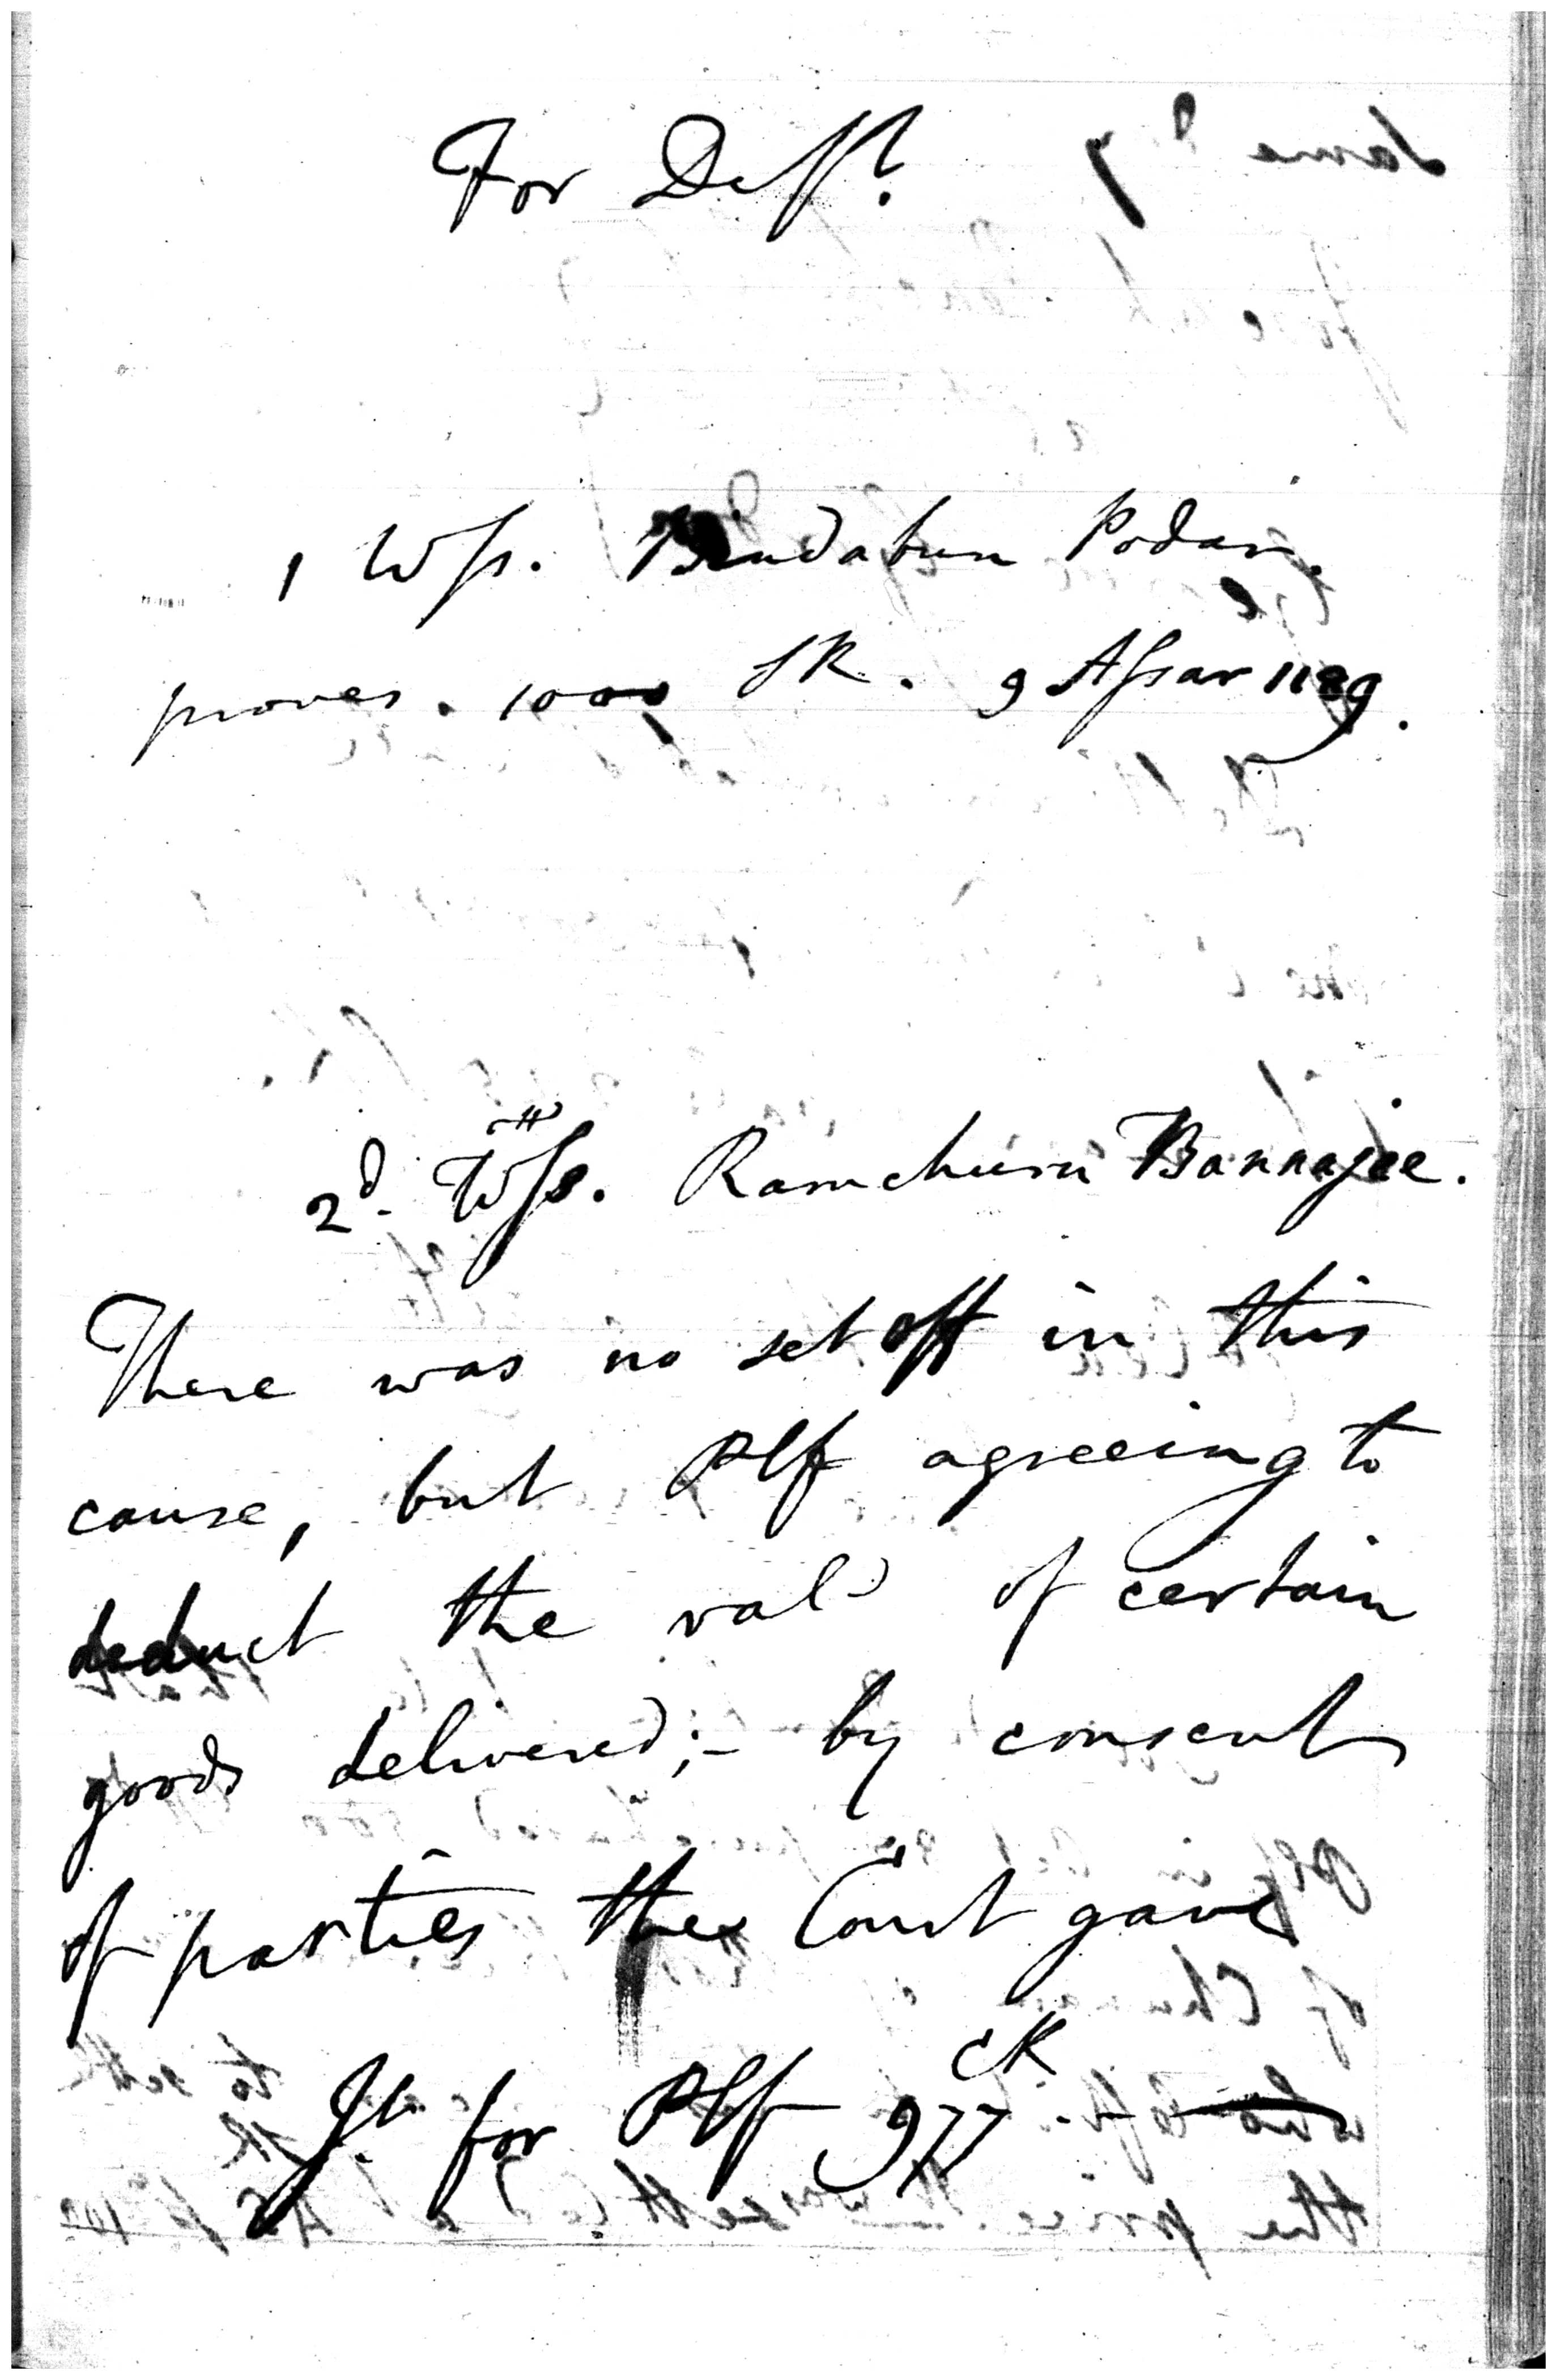 For Deft.
1 Wss. Bindabun Podar.
proves. 1000 SR. 9 Assar 1189.
2d. Wss. Ramchurn Bannajee.
There was no set off in this
cause, but Plf agreeing to
deduct the val. of certain
goods delivered;- by consent
of parties the Court gave
Jt. for Plf 977 CR